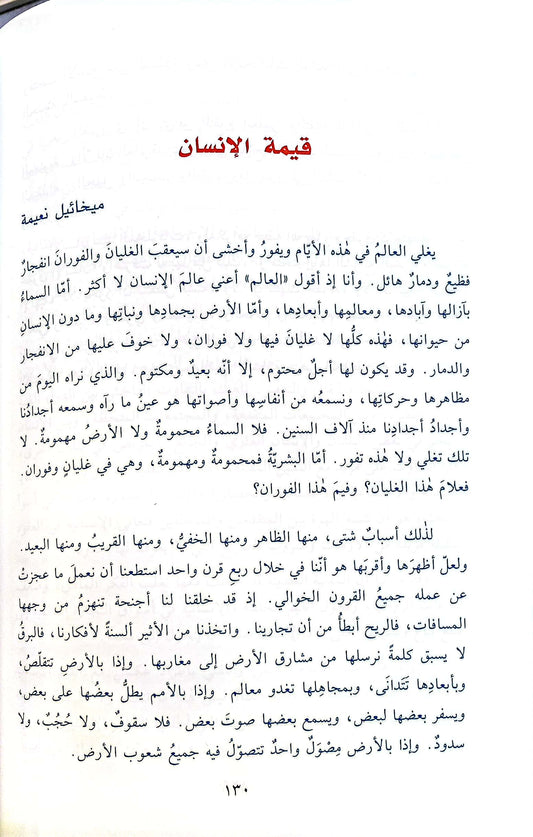 قيمة الإنسان
ميخائيل نعيمة
يغلي العالمُ في هٰذه الأيّام ويفورُ وأخشى أن سيعقبَ الغليانَ والفورانَ انفجارٌ
فظيعٌ ودمارٌ هائل. وأنا إذ أقول «العالم» أعني عالمَ الإنسان لا أكثر. أمّا السماءُ
بآزالها وآبادها، ومعالمِها وأبعادِها، وأمّا الأرض بجمادِها ونباتِها وما دون الإنسانِ
من حيوانها، فهٰذه كلُّها لا غليانَ فيها ولا فوران، ولا خوفَ عليها من الانفجار
والدمار. وقد يكون لها أجلٌ محتوم، إلا أنّه بعيدٌ ومكتوم. والذي نراه اليومَ من
مظاهرها وحركاتِها، ونسمعُه من أنفاسِها وأصواتها هو عينُ ما رآه وسمعه أجدادُنا
وأجدادُ أجدادِنا منذ آلاف السنين. فلا السماءُ محمومةٌ ولا الأرضُ مهمومةٌ. لا
تلك تغلي ولا هٰذه تفور. أمّا البشريّةُ فمحمومةٌ ومهمومةٌ، وهي في غليانٍ وفوران.
فعلامَ هٰذا الغليان؟ وفيمَ هٰذا الفوران؟
لذٰلك أسبابٌ شتى، منها الظاهر ومنها الخفيُّ، ومنها القريبُ ومنها البعيد.
ولعلّ أظهرَها وأقربَها هو أنّنا في خلال ربعِ قرن واحد استطعنا أن نعملَ ما عجزتْ
عن عمله جميعُ القرون الخوالي. إذ قد خلقنا لنا أجنحة تنهزمُ من وجهها
المسافات، فالريح أبطأُ من أن تجارينا. واتخذنا من الأثير ألسنةً لأفكارنا، فالبرقُ
لا يسبق كلمةً نرسلها من مشارق الأرض إلى مغاربها. وإذا بالأرضِ تتقلّصُ،
وبأبعادِها تَتَدانَى، وبمجاهِلها تغدو معالم. وإذا بالأمم يطلُّ بعضُها على بعض،
ويسفر بعضها لبعض، ويسمع بعضها صوتَ بعض. فلا سقوفٌ، ولا حُجُبٌ، ولا
سدودٌ. وإذا بالأرض مِصْوَلٌ واحدٌ تتصوّلُ فيه جميعُ شعوب الأرض.
١٣٠